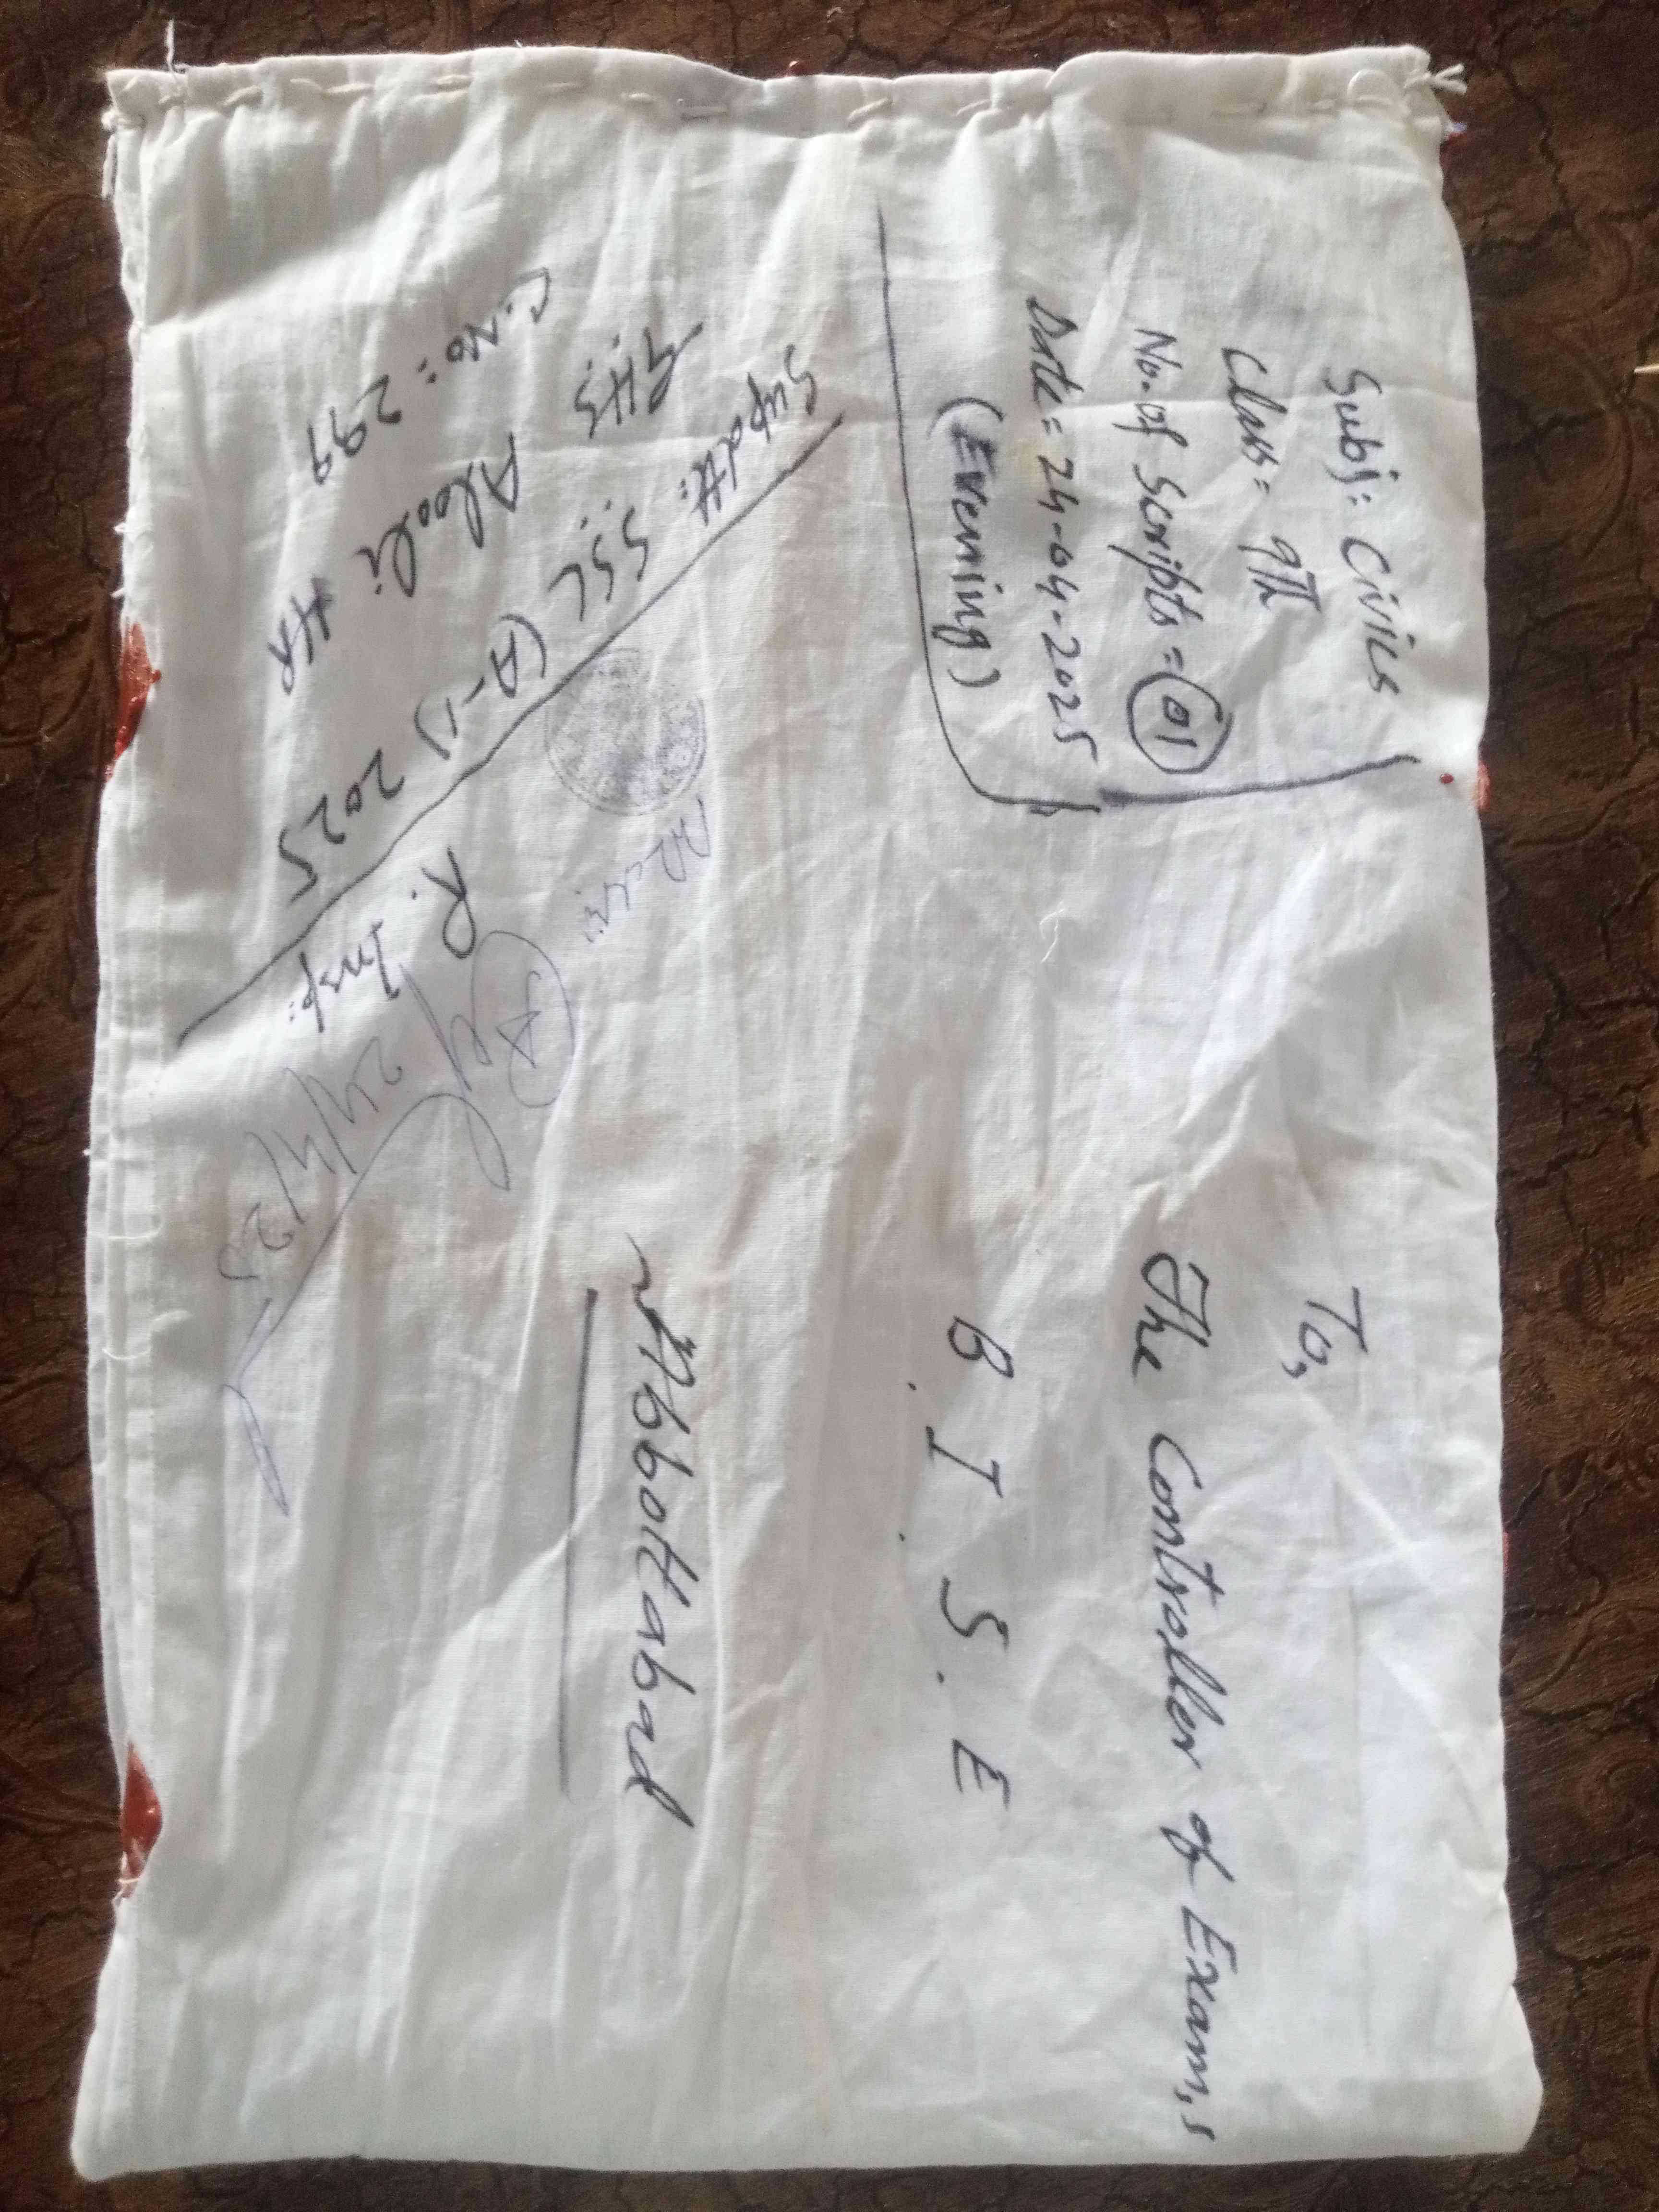 Subj: Civics
Class = 9th
No. of Scripts = 01
Date = 24-04-2025
(Evening)
To,
The Controller of Exam,s
B. I. S. E
Abbottabad
Supdtt:
S.S.C (A-1) 2025
G.H.S Alooli HR
C.No: 299
R. Insp:
24/4/25